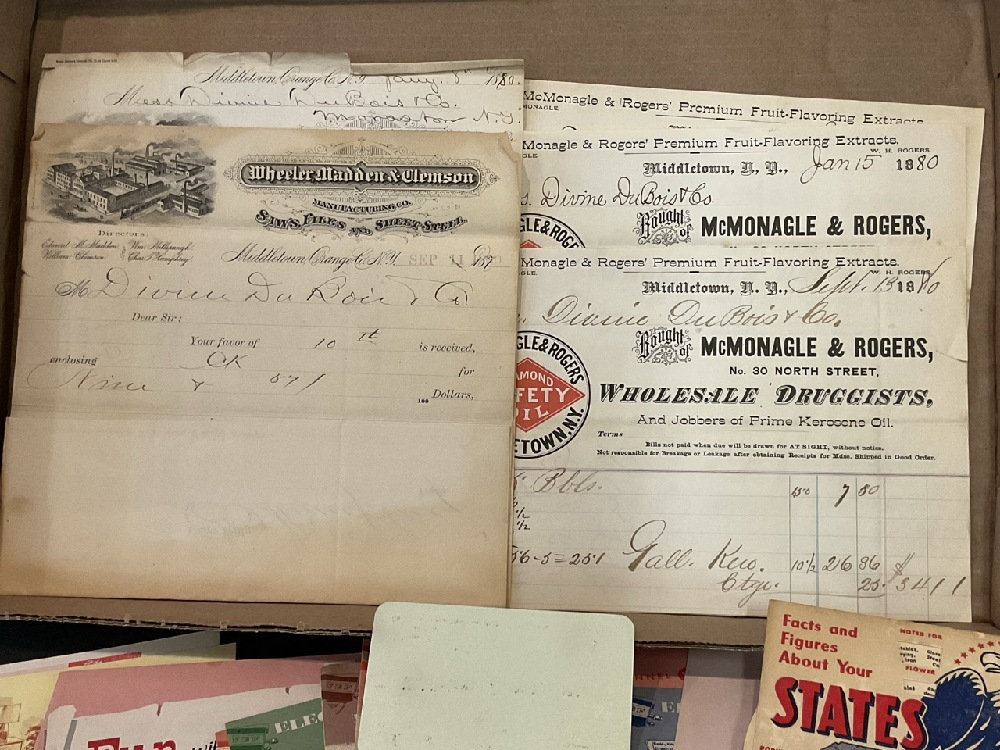 Middletown, Orange Co. N.Y. Jany. 8th 1880.
Mess Divine DuBois & Co.
N.Y.
Wheeler, Madden & Clemson
MANUFACTURING CO.
SAWS, FILES AND SHEET STEEL.
Directors:
Edward M. Madden,
William Clemson
Middletown, Orange Co. N.Y. SEP 11 187
M Divine Du Bois & Co
Dear Sir:
Your favor of 10th is received,
enclosing CK for
Nine & 57/
100 Dollars,
McMonagle & Rogers' Premium Fruit-Flavoring Extracts
MONAGLE
Monagle & Rogers' Premium Fruit-Flavoring Extracts.
GLE W. H. ROGERS
Middletown, N. Y., Jan 15 1880
Divine DuBois & Co
Bought of McMONAGLE & ROGERS,
GLE & ROGERS
No. 30 NORTH STREET,
Monagle & Rogers' Premium Fruit-Flavoring Extracts.
GLE. W. H. ROGERS
Middletown, N. Y., Sept. 13 1880
Divine DuBois & Co.
Bought of McMONAGLE & ROGERS,
No. 30 NORTH STREET,
WHOLESALE DRUGGISTS,
And Jobbers of Prime Kerosene Oil.
AGLE & ROGERS
AMOND
FETY
OIL
ETOWN, N.Y.
Terms
Bills not paid when due will be drawn for AT SIGHT, without notice.
Not responsible for Breakage or Leakage after obtaining Receipts for Mdse. Shipped in Good Order.
Bbls. 150 7 80
56-5=251 Gall. Kero. 10½ 26 36
Ctge. 25 $34 11
Facts and
Figures
About Your
STATES
NOTES FOR
FLOWER
ELEC